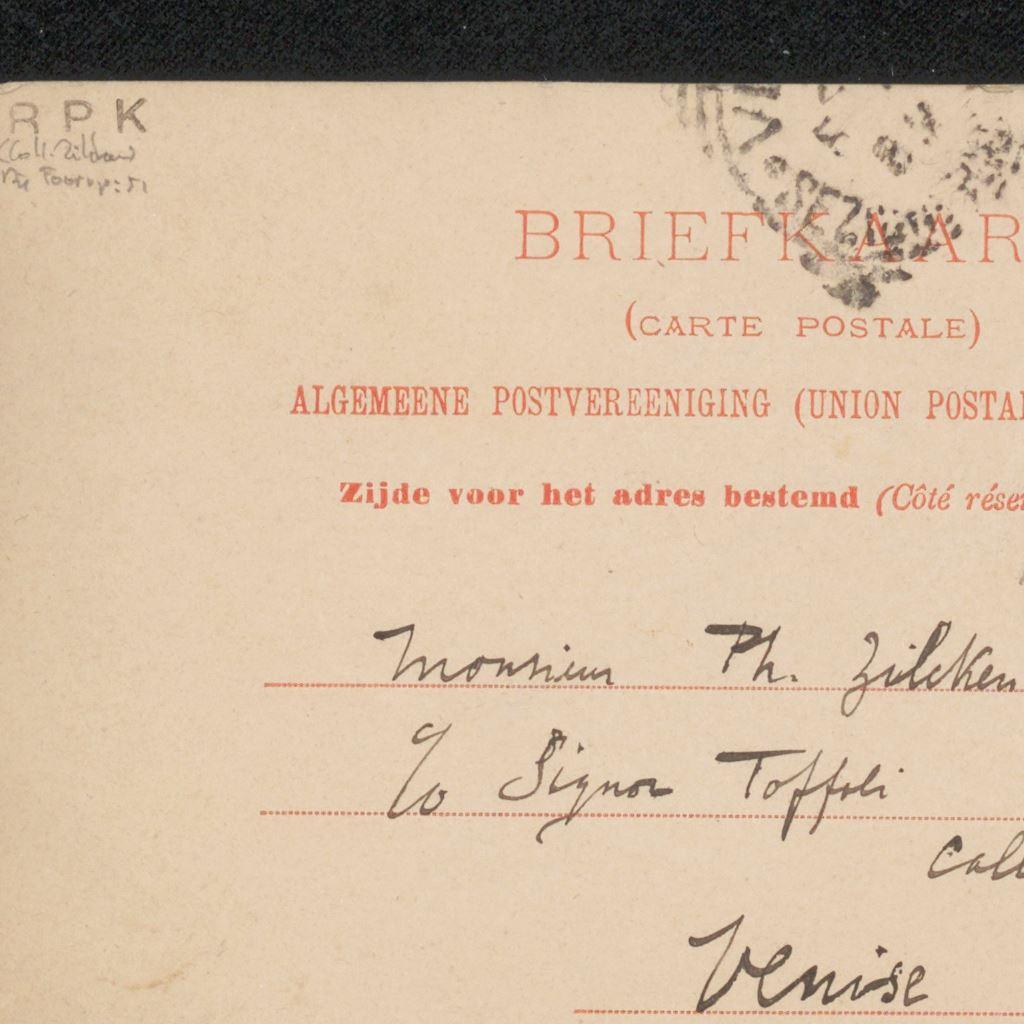 RPK
BRIEFKAAR
(CARTE POSTALE)
ALGEMEENE POSTVEREENIGING (UNION POSTA
Zijde voor het adres bestemd (Côté rése
Monsieur Ph. Zilcken
c/o Signor Toffoli
Call
Venise